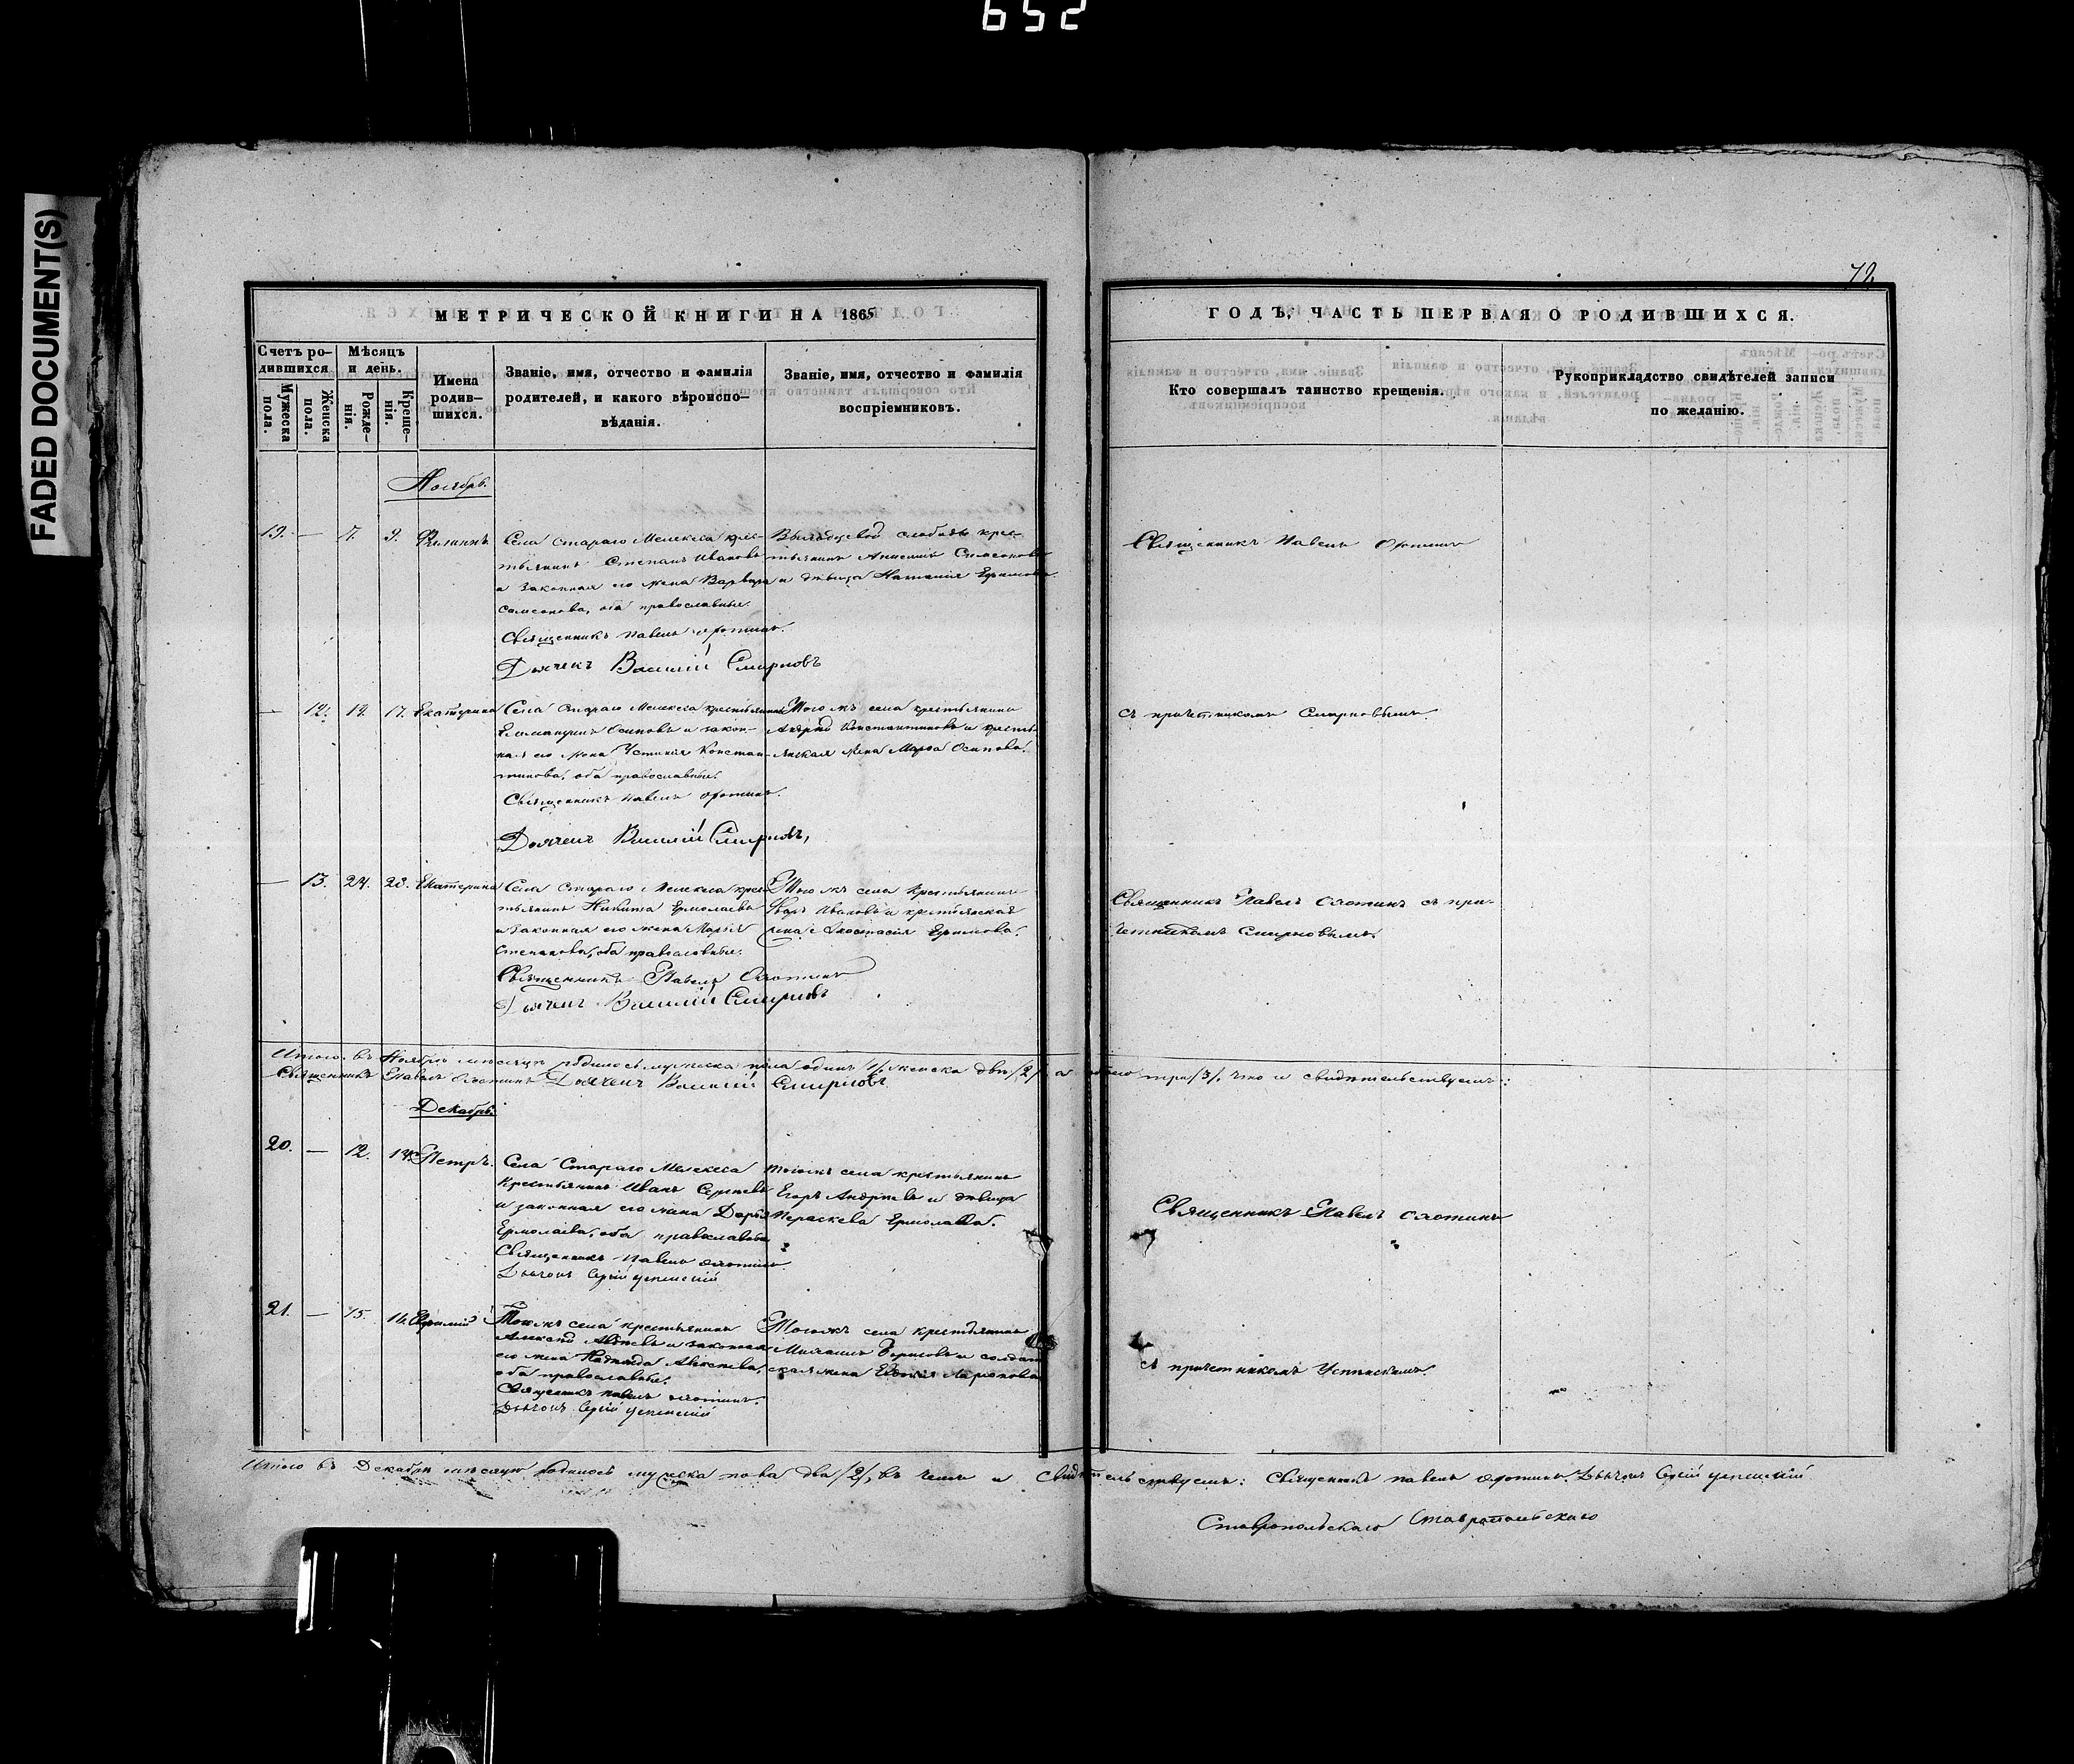 652
FADED DOCUMENT(S)
72.
МЕТРИЧЕСКОЙ КНИГИ НА 1865
ГОДЪ, ЧАСТЬ ПЕРВАЯ О РОДИВШИХСЯ.
Счетъ ро-
дившихся
Мужеска
пола.
Женска
пола.
Мѣсяцъ
и день.
Рожде-
нія.
Креще-
нія.
Имена
родив-
шихся.
Званіе, имя, отчество и фамилія
родителей, и какого вѣроиспо-
вѣданія.
Званіе, имя, отчество и фамилія
воспріемниковъ.
Кто совершалъ таинство крещенія.
Рукоприкладство свидѣтелей записи
по желанію.
Ноябрь.
19. — 7. 9. Филиппъ
Села Стараго Мелекеса крес-
тьянинъ Степанъ Ивановъ
и законная его жена Варвара
Самсонова, оба православные.
Священникъ Павелъ Охотинъ.
Дьячекъ Василій Смирновъ
слободы крес-
тьянинъ Симеоновъ
и дѣвица Наталия
Священникъ Павелъ Охотинъ
— 12. 14. 17. Екатерина
Села Стараго Мелекеса крестьянинъ
Осиповъ и закон-
ная его жена Устинія Констан-
тинова, оба православные.
Священникъ Павелъ Охотинъ.
Дьячекъ Василій Смирновъ,
Тогожъ села крестьянинъ
Андрей Константиновъ и кресть-
янская жена Марфа Осипова.
съ причетникомъ Смирновымъ.
— 13. 24. 28. Екатерина
Села Стараго Мелекеса крес-
тьянинъ Никита Ермолаевъ
и законная его жена Марья
Степанова, оба православные.
Священникъ Павелъ Охотинъ
Дьячекъ Василій Смирновъ
Тогожъ села крестьянинъ
Ивановъ и крестьянская
жена Анастасія Ефимова.
Священникъ Павелъ Охотинъ съ при-
четникомъ Смирновымъ.
Итого въ Ноябрѣ мѣсяцѣ родилось мужеска пола одинъ /1/, женска двѣ /2/, а обоего три /3/, что и свидѣтельствуемъ:
Священникъ Павелъ Охотинъ Дьячекъ Василій Смирновъ
Декабрь.
20. — 12. 14. Петръ.
Села Стараго Мелекеса
крестьянинъ Иванъ Сергѣевъ
и законная его жена Дарья
Ермолаева, оба православные
Священникъ Павелъ Охотинъ.
Дьячокъ Сергій Успенскій
Тогожъ села крестьянинъ
Егоръ Андреевъ и дѣвица
Параскева Ермолаева.
Священникъ Павелъ Охотинъ
21. — 15. 16. Евфимій
Тогожъ села крестьянинъ
Алексѣй и законная
его жена Надежда Алексѣева,
оба православные.
Священникъ Павелъ Охотинъ.
Дьячокъ Сергій Успенскій
Тогожъ села крестьянинъ
Михаилъ Борисовъ и солдат-
ская жена Евдокія Ларіонова
съ причетникомъ Успенскимъ.
Итого въ Декабрѣ мѣсяцѣ родилось мужеска пола два /2/, въ чемъ и свидѣтельствуемъ: Священникъ Павелъ Охотинъ. Дьячокъ Сергій Успенскій
Ставропольскаго Ставропольскаго